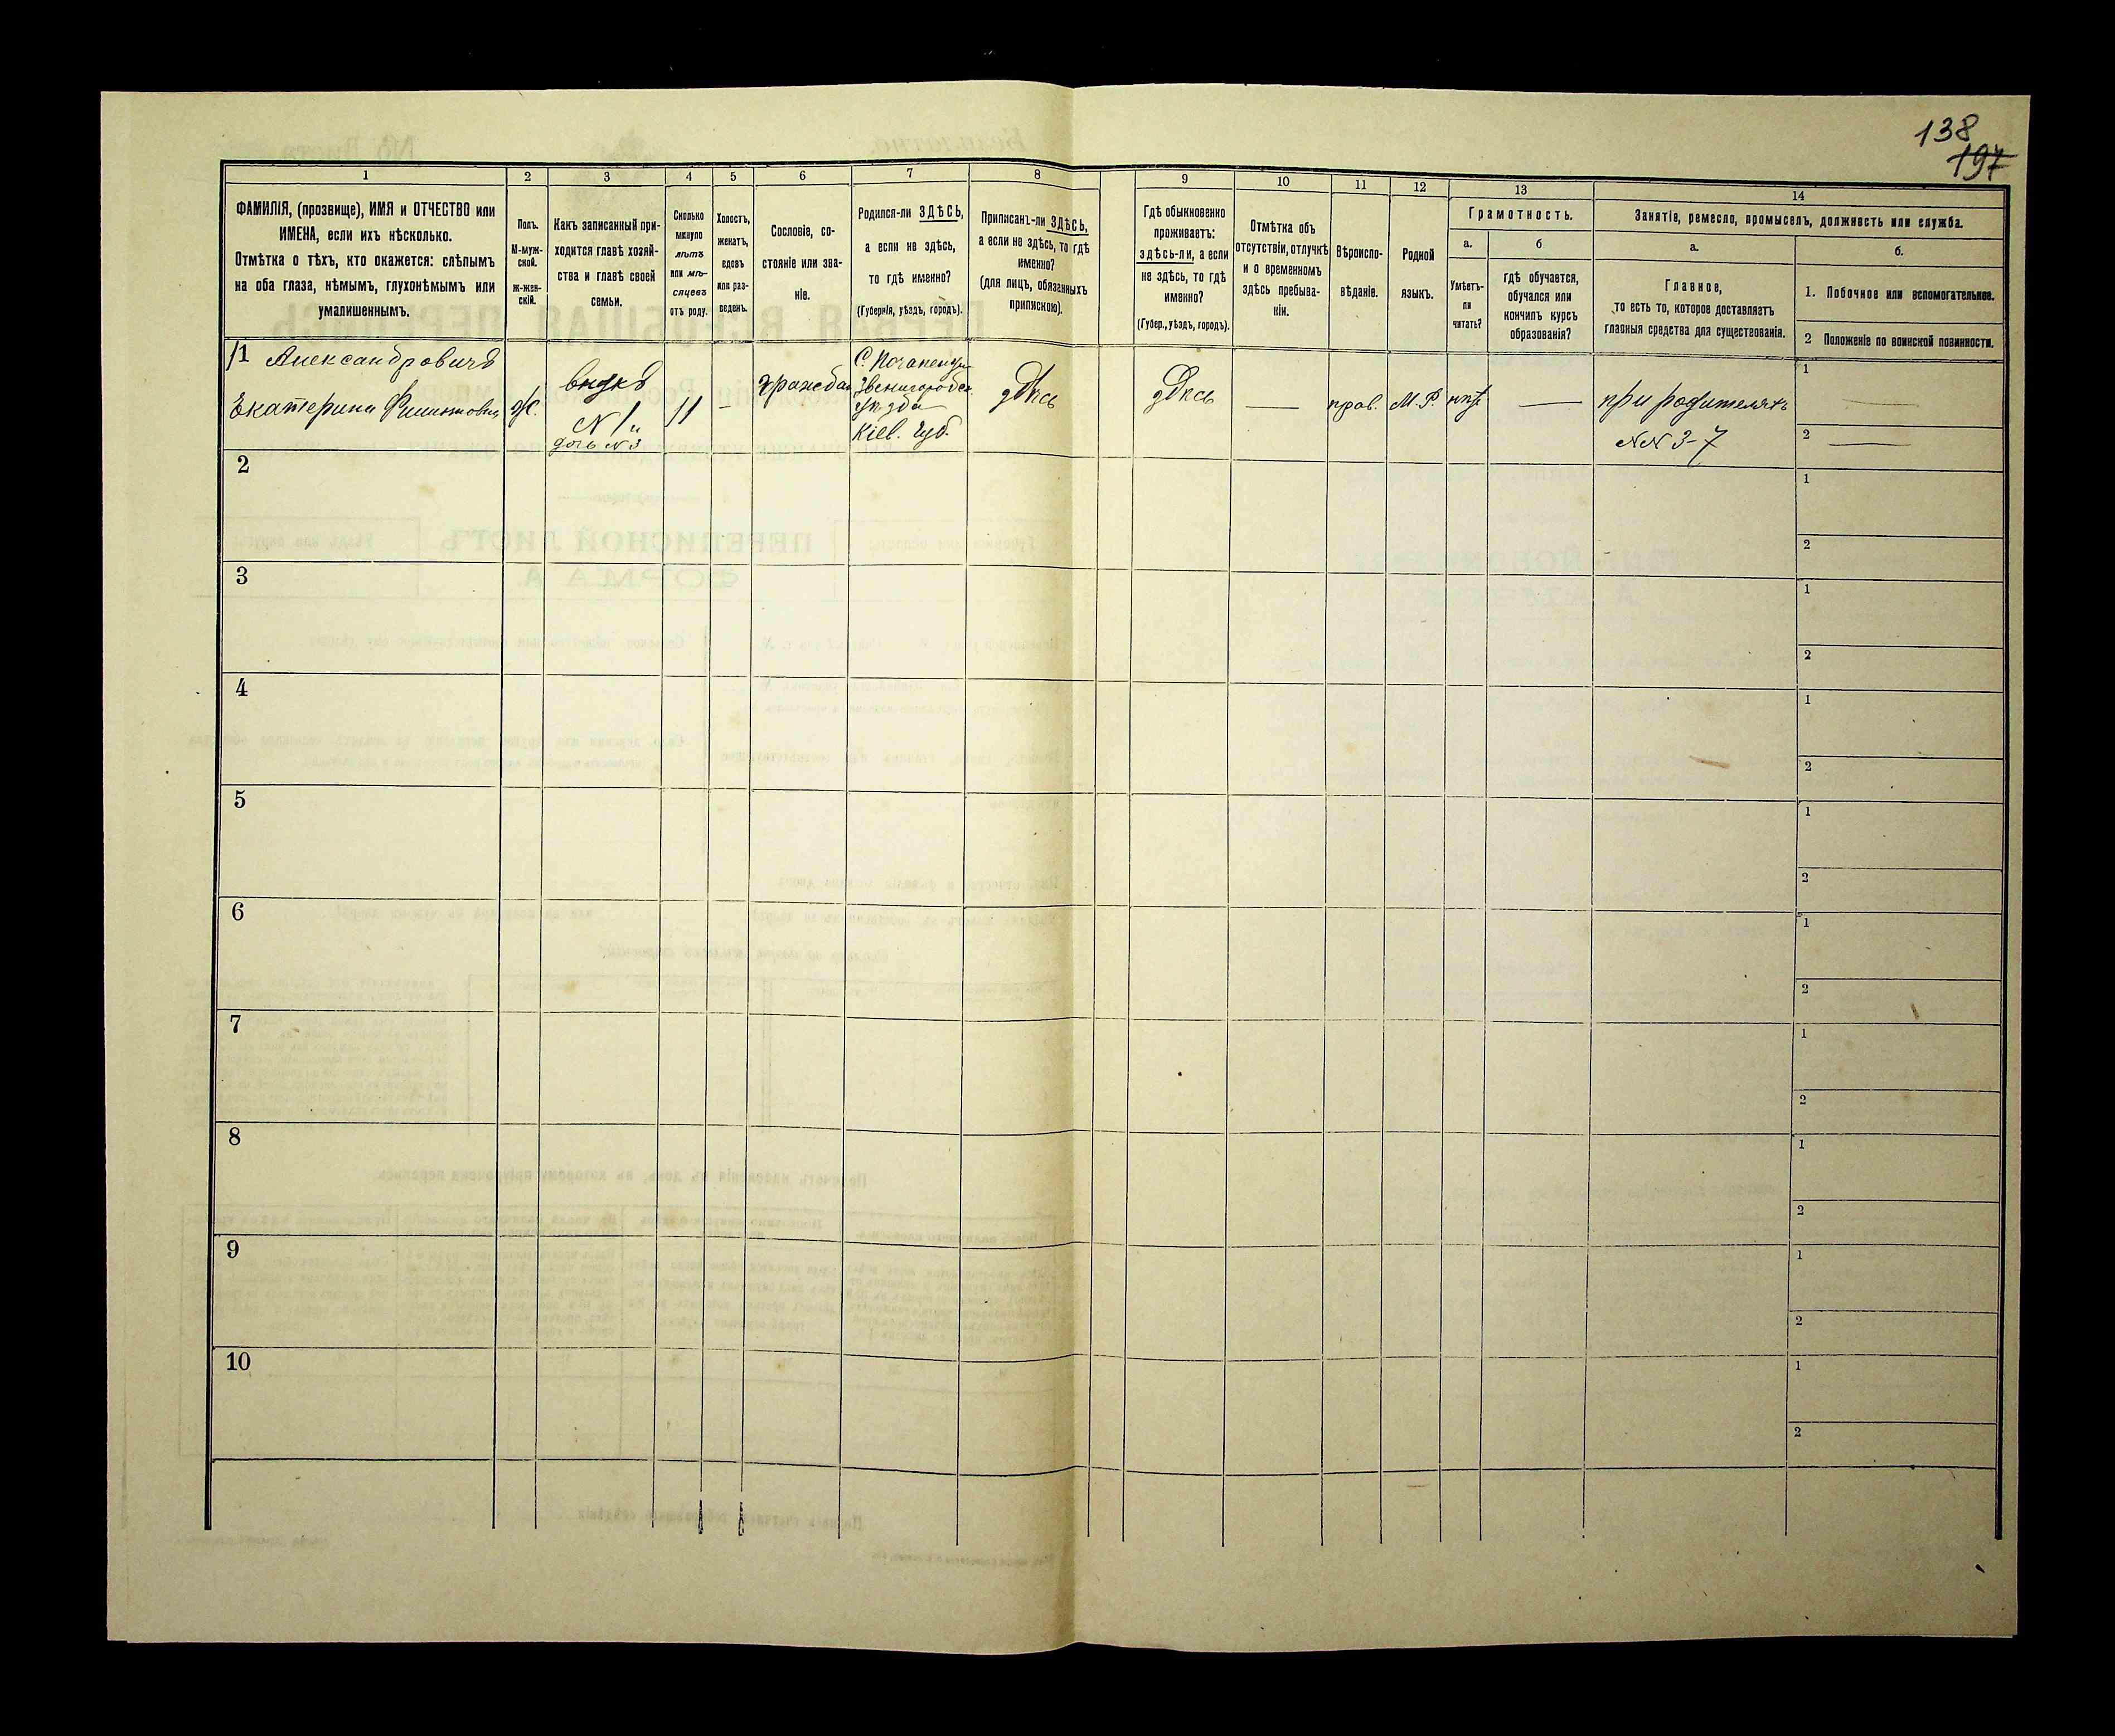 138
197
1
2
3
4
5
6
7
8
9
10
11
12
13
14
ФАМИЛІЯ, (прозвище), ИМЯ и ОТЧЕСТВО или
ИМЕНА, если ихъ нѣсколько.
Отмѣтка о тѣхъ, кто окажется: слѣпымъ
на оба глаза, нѣмымъ, глухонѣмымъ или
умалишеннымъ.
Полъ.
М-муж-
ской.
ж-жен-
скій.
Какъ записанный при-
ходится главѣ хозяй-
ства и главѣ своей
семьи.
Сколько
минуло
лѣтъ
или мѣ-
сяцевъ
отъ роду.
Холостъ,
женатъ,
вдовъ
или раз-
веденъ.
Сословіе, со-
стояніе или зва-
ніе.
Родился-ли ЗДѢСЬ,
а если не здѣсь,
то гдѣ именно?
(Губернія, уѣздъ, городъ).
Приписанъ-ли ЗДѢСЬ,
а если не здѣсь, то гдѣ
именно?
(для лицъ, обязанныхъ
припискою).
Гдѣ обыкновенно
проживаетъ:
здѣсь-ли, а если
не здѣсь, то гдѣ
именно?
(Губер., уѣздъ, городъ).
Отмѣтка объ
отсутствіи, отлучкѣ
и о временномъ
здѣсь пребыва-
ніи.
Вѣроиспо-
вѣданіе.
Родной
языкъ.
Грамотность.
а.
Умѣетъ-
ли
читать?
б
гдѣ обучается,
обучался или
кончилъ курсъ
образованія?
Занятіе, ремесло, промыселъ, должность или служба.
а.
Главное,
то есть то, которое доставляетъ
главныя средства для существованія.
б.
1. Побочное или вспомогательное.
2 Положеніе по воинской повинности.
1 Александровичъ
Екатерина
ж.
N 1 и
дочь N 3
11
С.
Звенигородск.
уѣзда
Кіев. Губ.
здѣсь
здѣсь
прав.
М.Р.
нѣт
при родителяхъ
NN 3-7
1
2
2
1
2
3
1
2
4
1
2
5
1
2
6
1
2
7
1
2
8
1
2
9
1
2
10
1
2